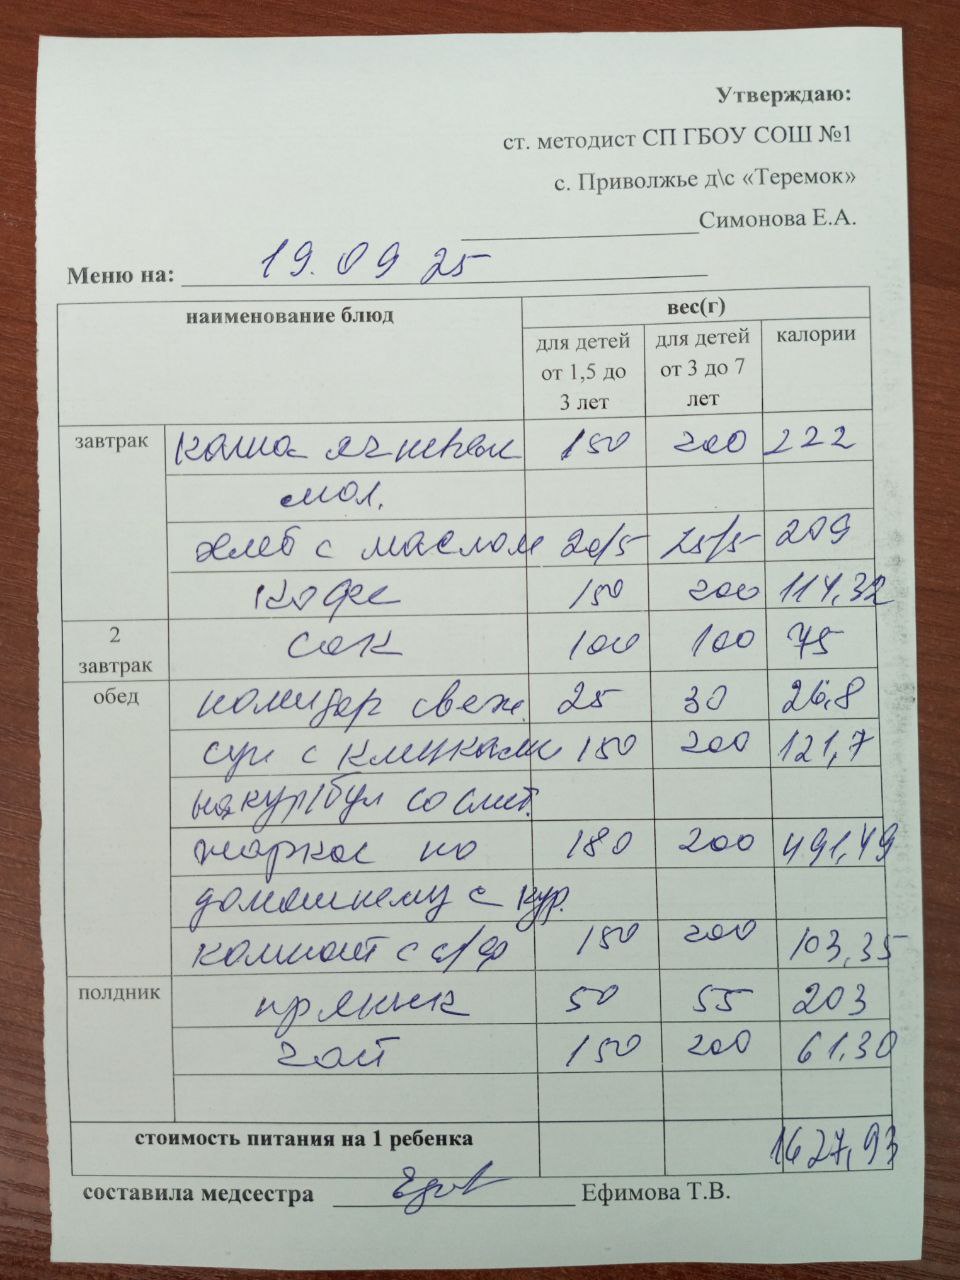 Утверждаю:
ст. методист СП ГБОУ СОШ №1
с. Приволжье д\с «Теремок»
Симонова Е.А.
Меню на: 19.09 25
наименование блюд вес(г)
для детей от 1,5 до 3 лет для детей от 3 до 7 лет калории
завтрак каша ячневая 150 200 222
мол.
хлеб с маслом 20/5 25/5 209
кофе 150 200 114,32
2 завтрак сок 100 100 75
обед помидор свеж. 25 30 26,8
суп с клецками 150 200 121,7
на кур/бул со смет.
жаркое по 180 200 491,49
домашнему с кур.
компот с с/ф 150 200 103,35
полдник пряник 50 55 203
чай 150 200 61,30
стоимость питания на 1 ребенка 1627,93
составила медсестра Ефимова Т.В.